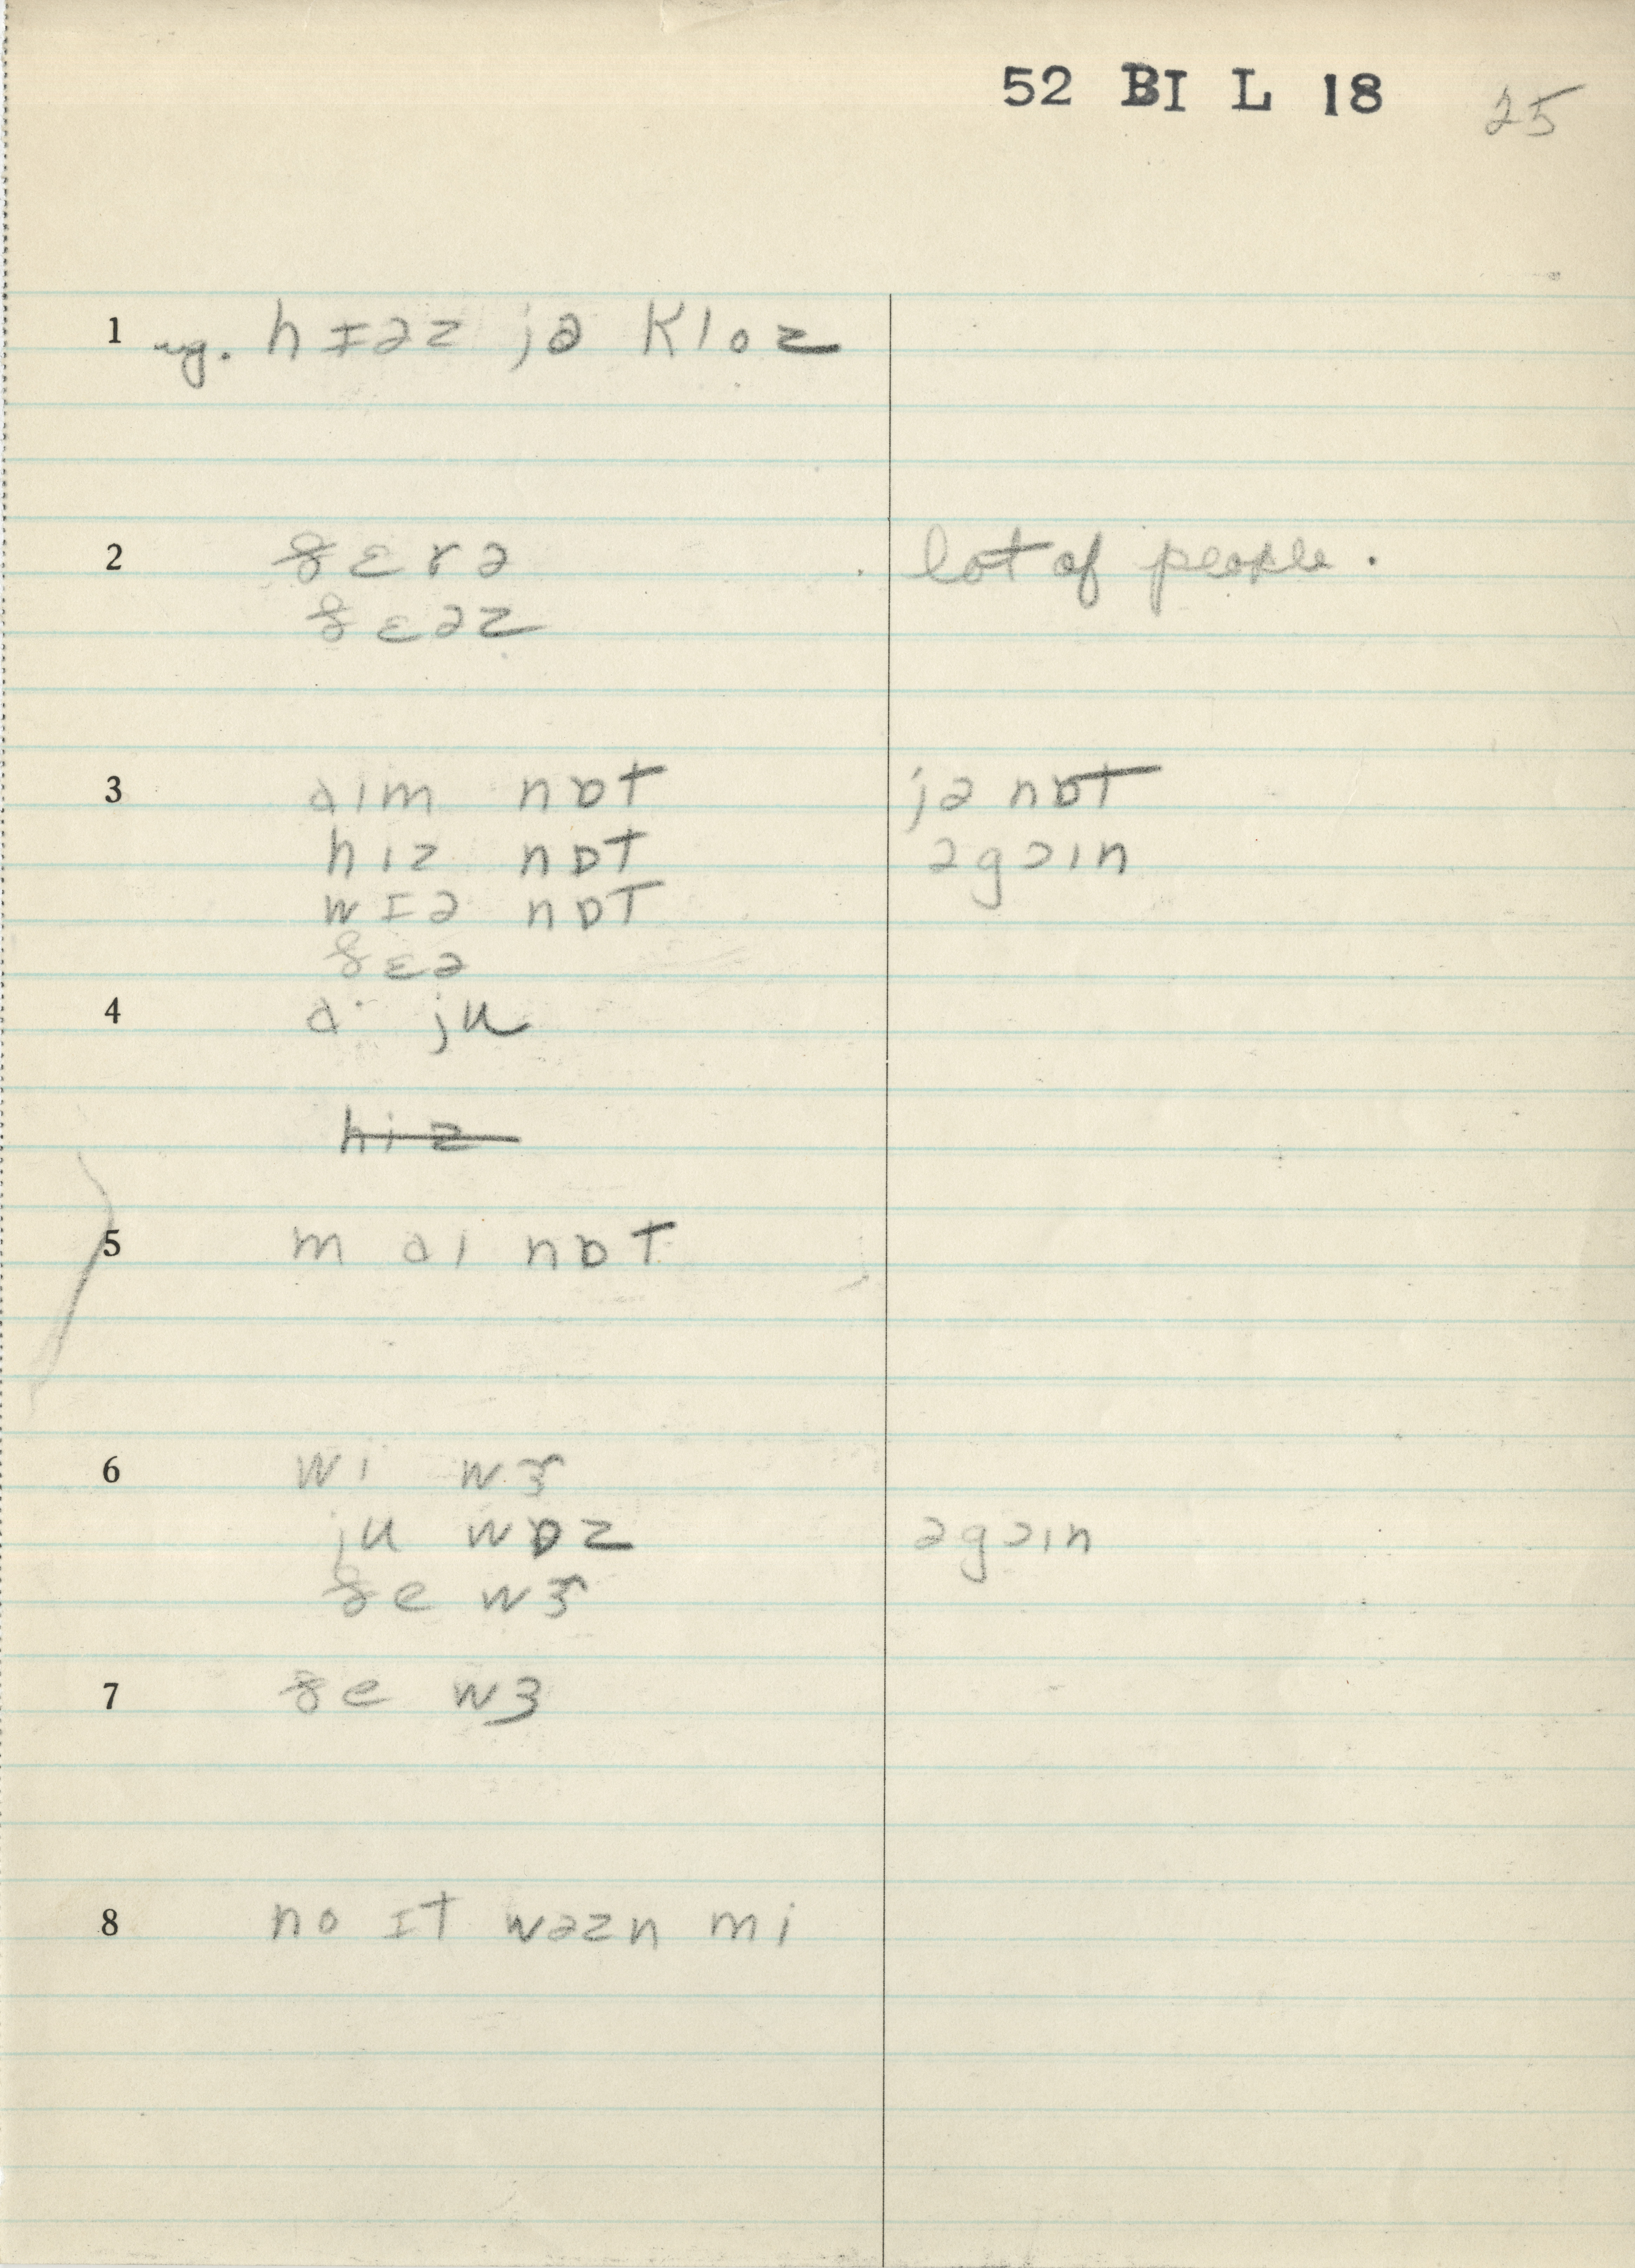 52 BI L 18 25
1 ug. hɪəz jə kloz
2 ðɛrə lot of people.
ðɛəz
3 aim nɒt jə nɒt
hiz nɒt əgɔin
wɪə nɒt
ðɛə
4 a· ju
hiz
5 m ai nɒt
6 wi wɝ
ju wɒz əgɔin
ðe wɝ
7 ðe wɜ
8 no ɪt wəzn mi